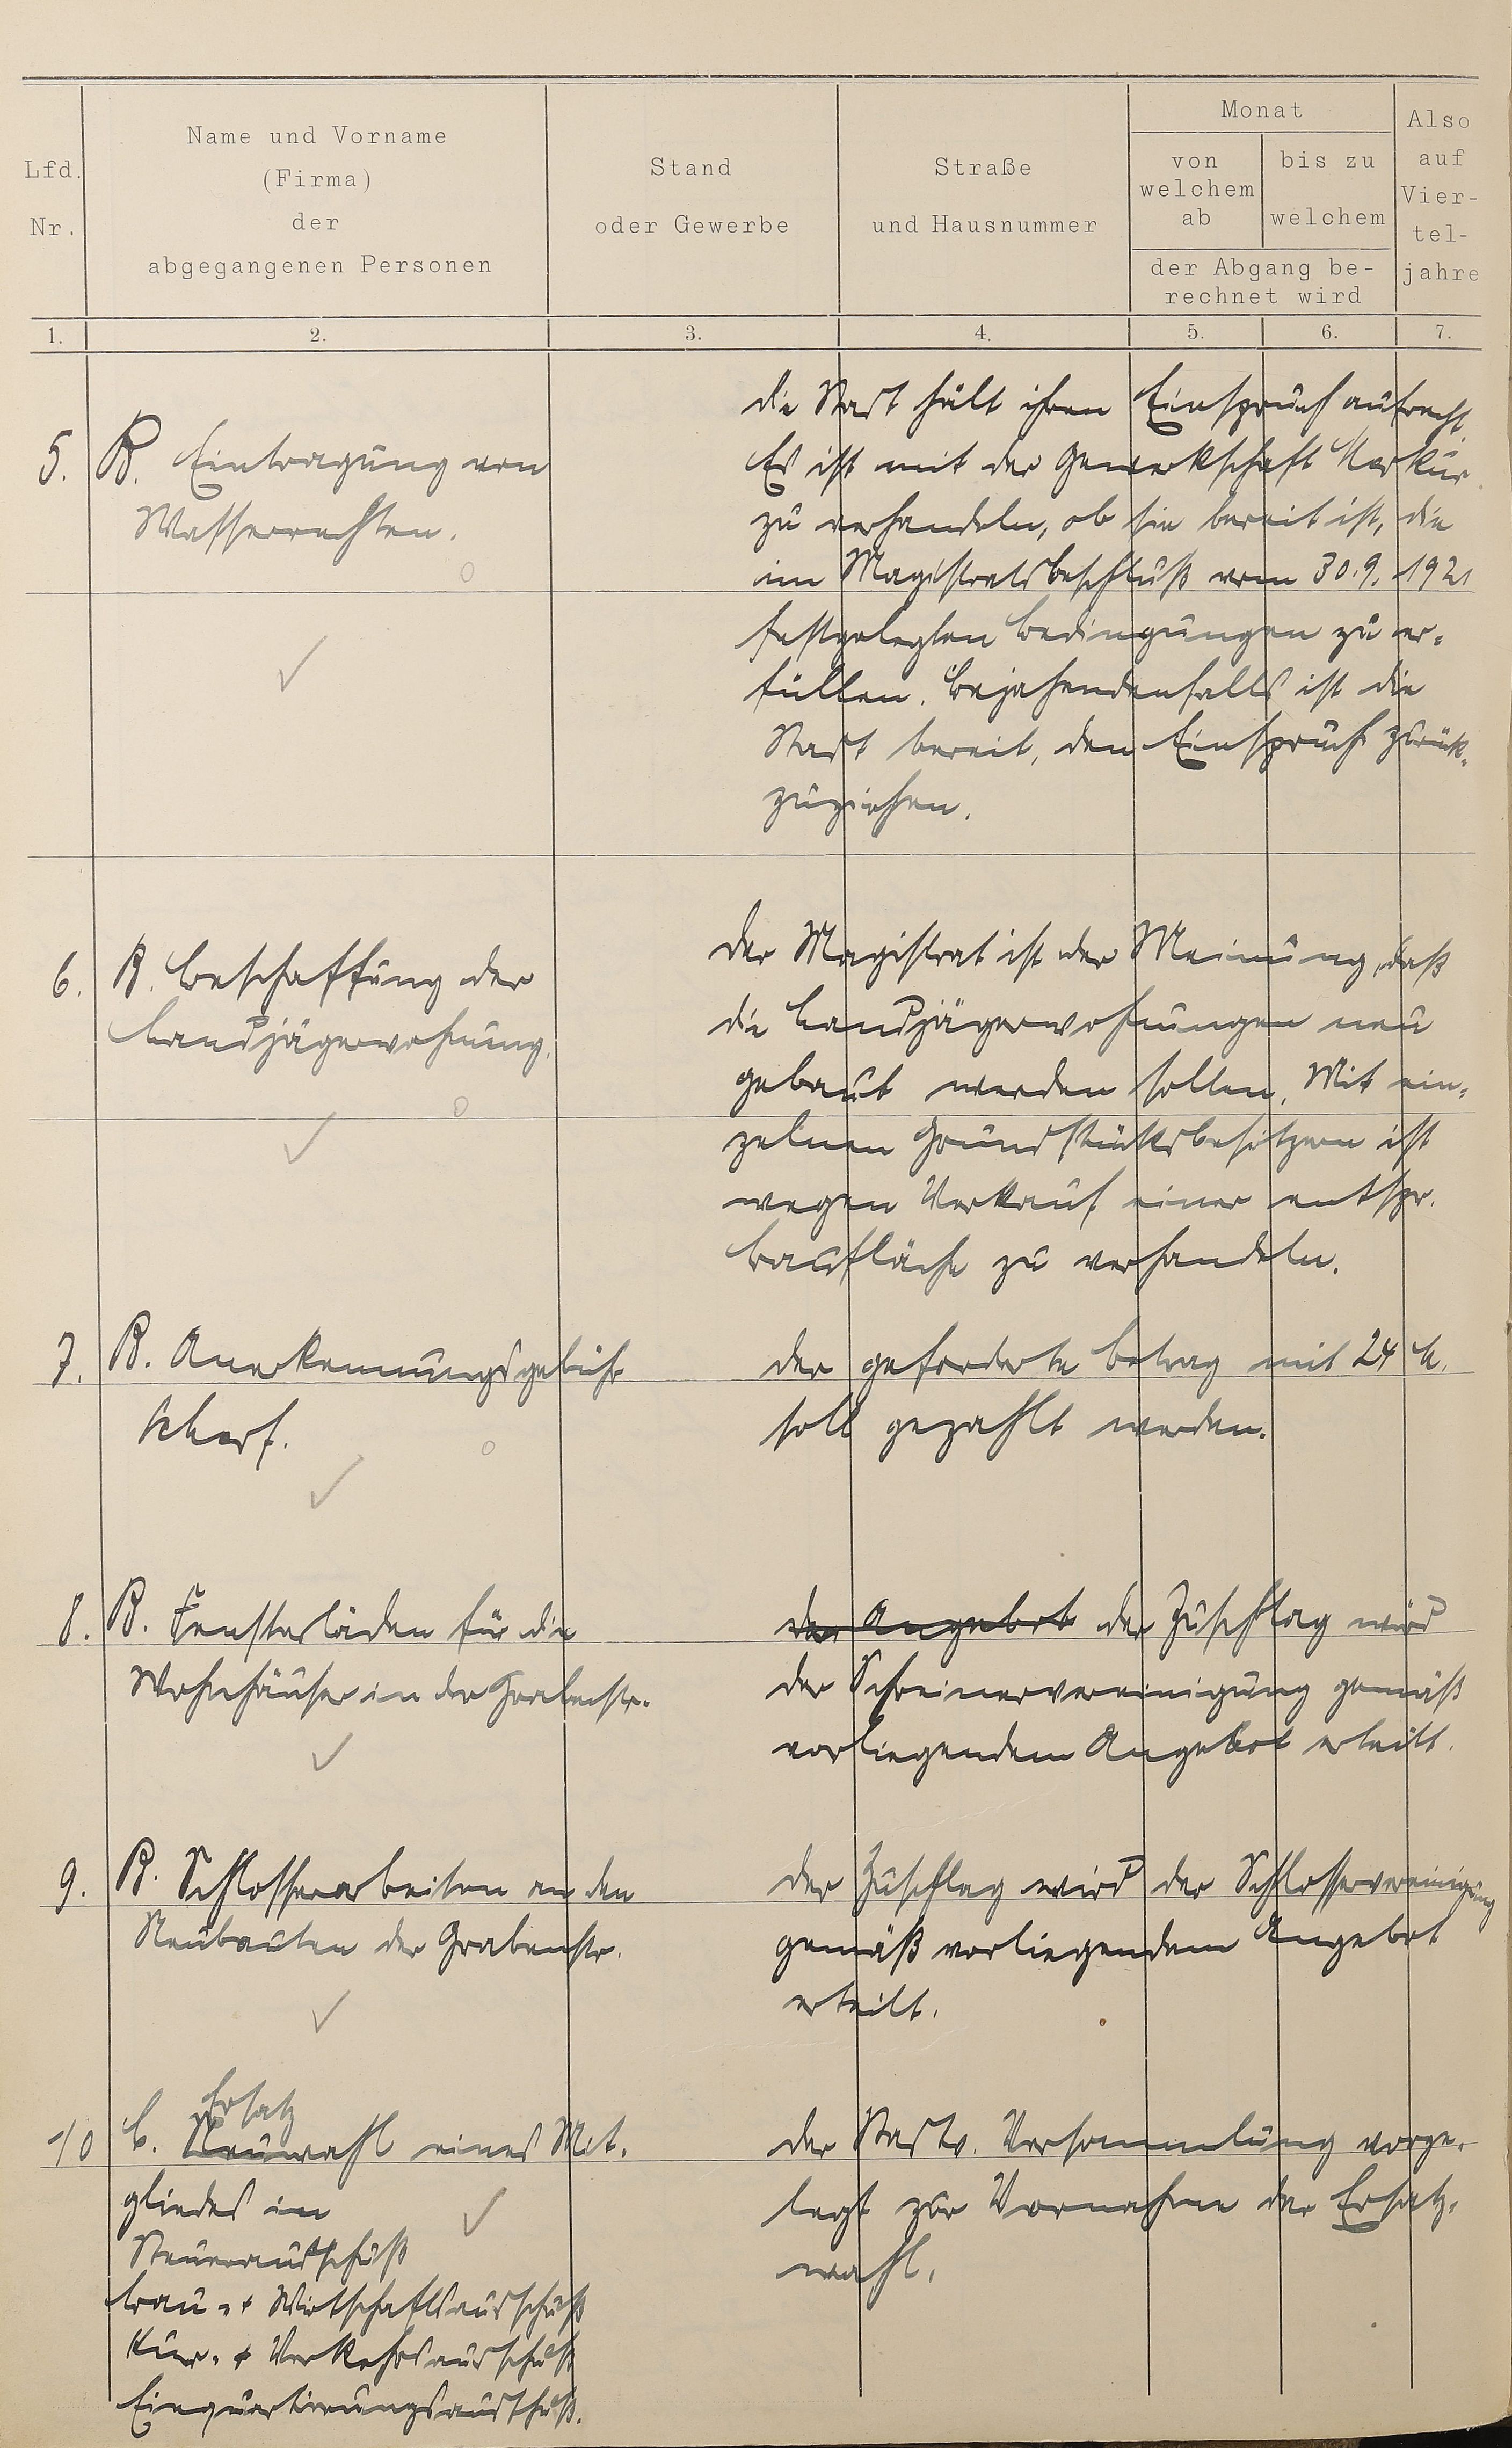 Lfd.
Nr.
Name und Vorname
(Firma)
der
abgegangenen Personen
Stand
oder Gewerbe
Straße
und Hausnummer
Monat
von
welchem
ab
bis zu
welchem
der Abgang be-
rechnet wird
Also
auf
Vier-
tel-
jahre
1. 2. 3. 4. 5. 6. 7.
5. B. Eintragung von
Wasserrechten.
die Stadt hält ihren Einspruch aufrecht.
Es ist mit der Gewerkschaft Merkur
zu verhandeln, ob sie bereit ist, die
im Magistratsbeschluß vom 30.9.1921
festgelegten Bedingungen zu er-
füllen. Bejahendenfalls ist die
Stadt bereit, den Einspruch zurück-
zuziehen.
6. B. Beschaffung der
Landjägerwohnung.
Der Magistrat ist der Meinung, daß
die Landjägerwohnungen neu
gebaut werden sollen. Mit ein-
zelnen Grundstücksbesitzern ist
wegen Verkauf einer entspr.
Baufläche zu verhandeln.
7. B. Anerkennungsgebühr
Scharf.
Der geforderte Betrag mit 24 M.
soll gezahlt werden.
8. B. Fensterläden für die
Wohnhäuser in der Grabenstr.
Das Angebot der Zuschlag wird
der Schreinervereinigung gemäß
vorliegendem Angebot erteilt.
9. B. Schlosserarbeiten an den
Neubauten der Grabenstr.
Der Zuschlag wird der Schlosservereinigung
gemäß vorliegendem Angebot
erteilt.
Ersatz
10 C. Neuwahl eines Mit-
gliedes im
Steuerausschuß
Bau- + Wirtschaftsausschuß
Kur- + Verkehrsausschuß
Einquartierungsausschuß.
Der Stadtv. Versammlung vorge-
legt zur Vornahme der Ersatz-
wahl.